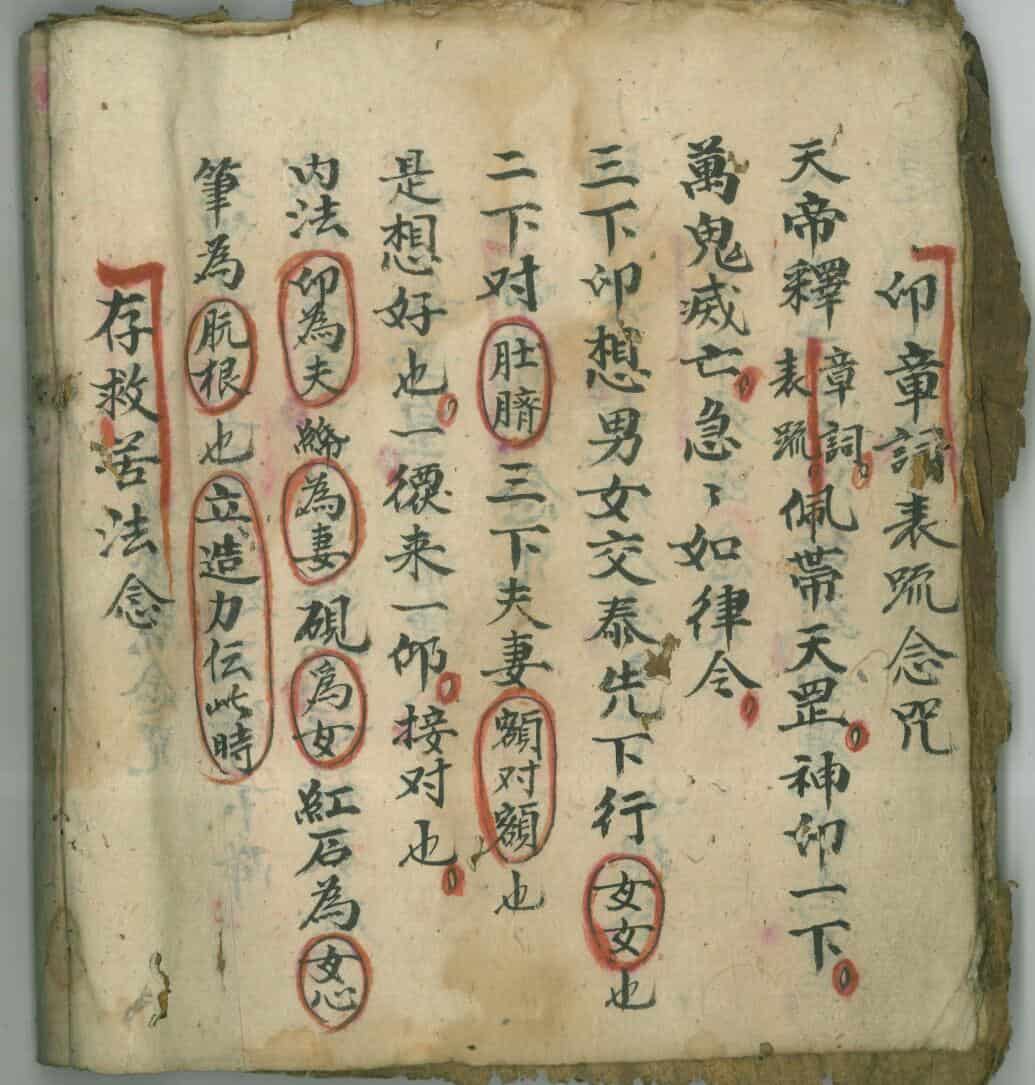 印章詞表疏念咒
天帝釋章詞表疏佩帶天罡神印一下
萬鬼滅亡急々如律令
三下印想男女交泰先下行女女也
二下对肚臍三下夫妻額对額也
是想好也一 来一仰接对也
内法印為夫 為妻硯爲女紅石為女心
筆為朊根也立造力伝此時
存救苦法念